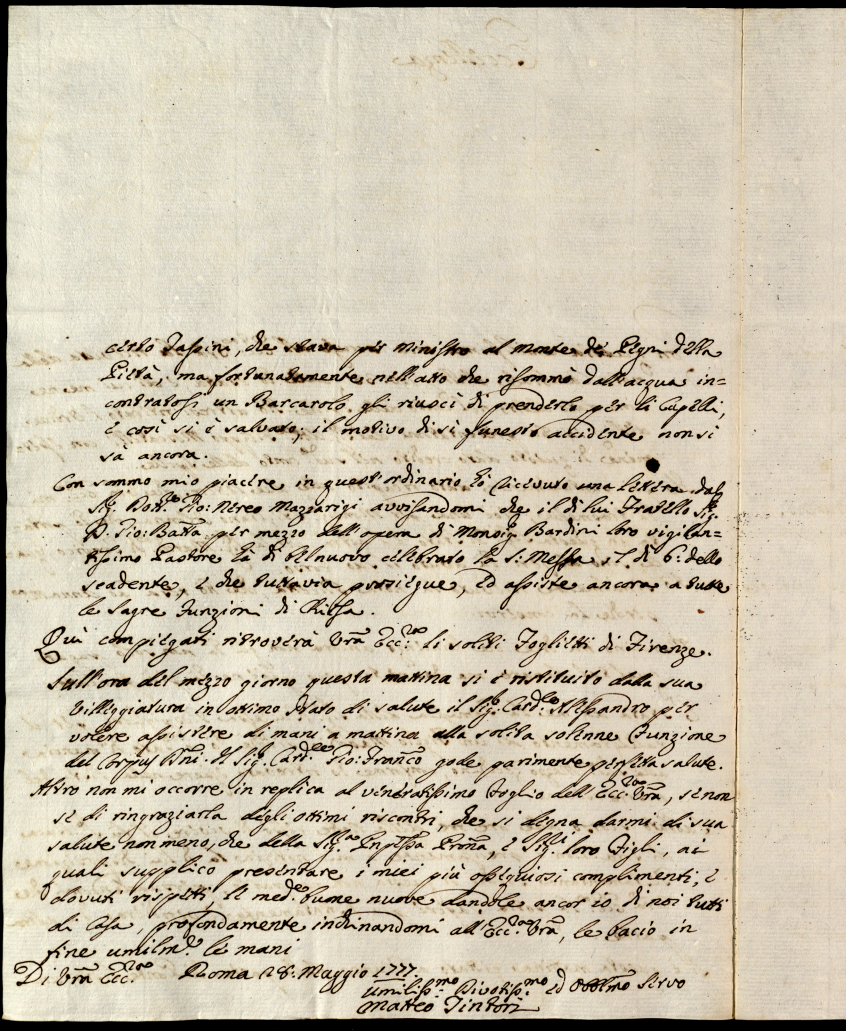 certo Tassini, che stava per Ministro al Monte de' Pegni della
Pietà, ma fortunatamente nell'atto che risommò dall'acqua in=
contratosi un Barcarolo gli riuscì di prenderlo per li Capelli,
e così si è salvato; il motivo di sì funesto accidente non si
sà ancora.
Con sommo mio piacere in quest'ordinario hò ricevuto una lettera dal
Sig.r Dott.re Gio: Nereo Mazzarigi avvisandomi che il di lui Fratello Sig.r
D. Gio: Batta per mezzo dell'opera di Monsig.r Bardini loro vigilan=
tissimo Pastore hà di bel nuovo celebrato la S: Messa il dì 6: dello
scadente, e che tuttavia prosiegue, ed assiste ancora a tutte
le sagre Funzioni di Chiesa.
Quì compiegati ritroverà Vrã Ecc.za li soliti Foglietti di Firenze.
Sull'ora del mezzo giorno questa mattina si è restituito dalla sua
Villeggiatura in ottimo stato di salute il Sig.r Card.le Alessandro per
volere assistere di mani a mattina alla solita solenne Funzione
del Corpus Dñi. Il Sig.r Card.le Gio: Franco gode parimente perfetta salute.
Altro non mi occorre in replica al veneratissimo Foglio dell'Ecc.za Vrã, se non
se di ringraziarla degli ottimi riscontri, che si degna darmi di sua
salute non meno, che della Sig.ra Pnpessa Prm̃a, e Sig.ri loro Figli, ai
quali supplico presentare i miei più ossequiosi complimenti, e
dovuti rispetti, le med.e buone nuove dandole ancor io di noi tutti
di Casa, profondamente inchinandomi all'Ecc.za Vrã, le bacio in
fine umilm.te le mani
Di Vrã Ecc.za Roma 28: Maggio 1777.
Umiliss.mo Divotiss.mo ed Obblmo Servo
Matteo Tintori